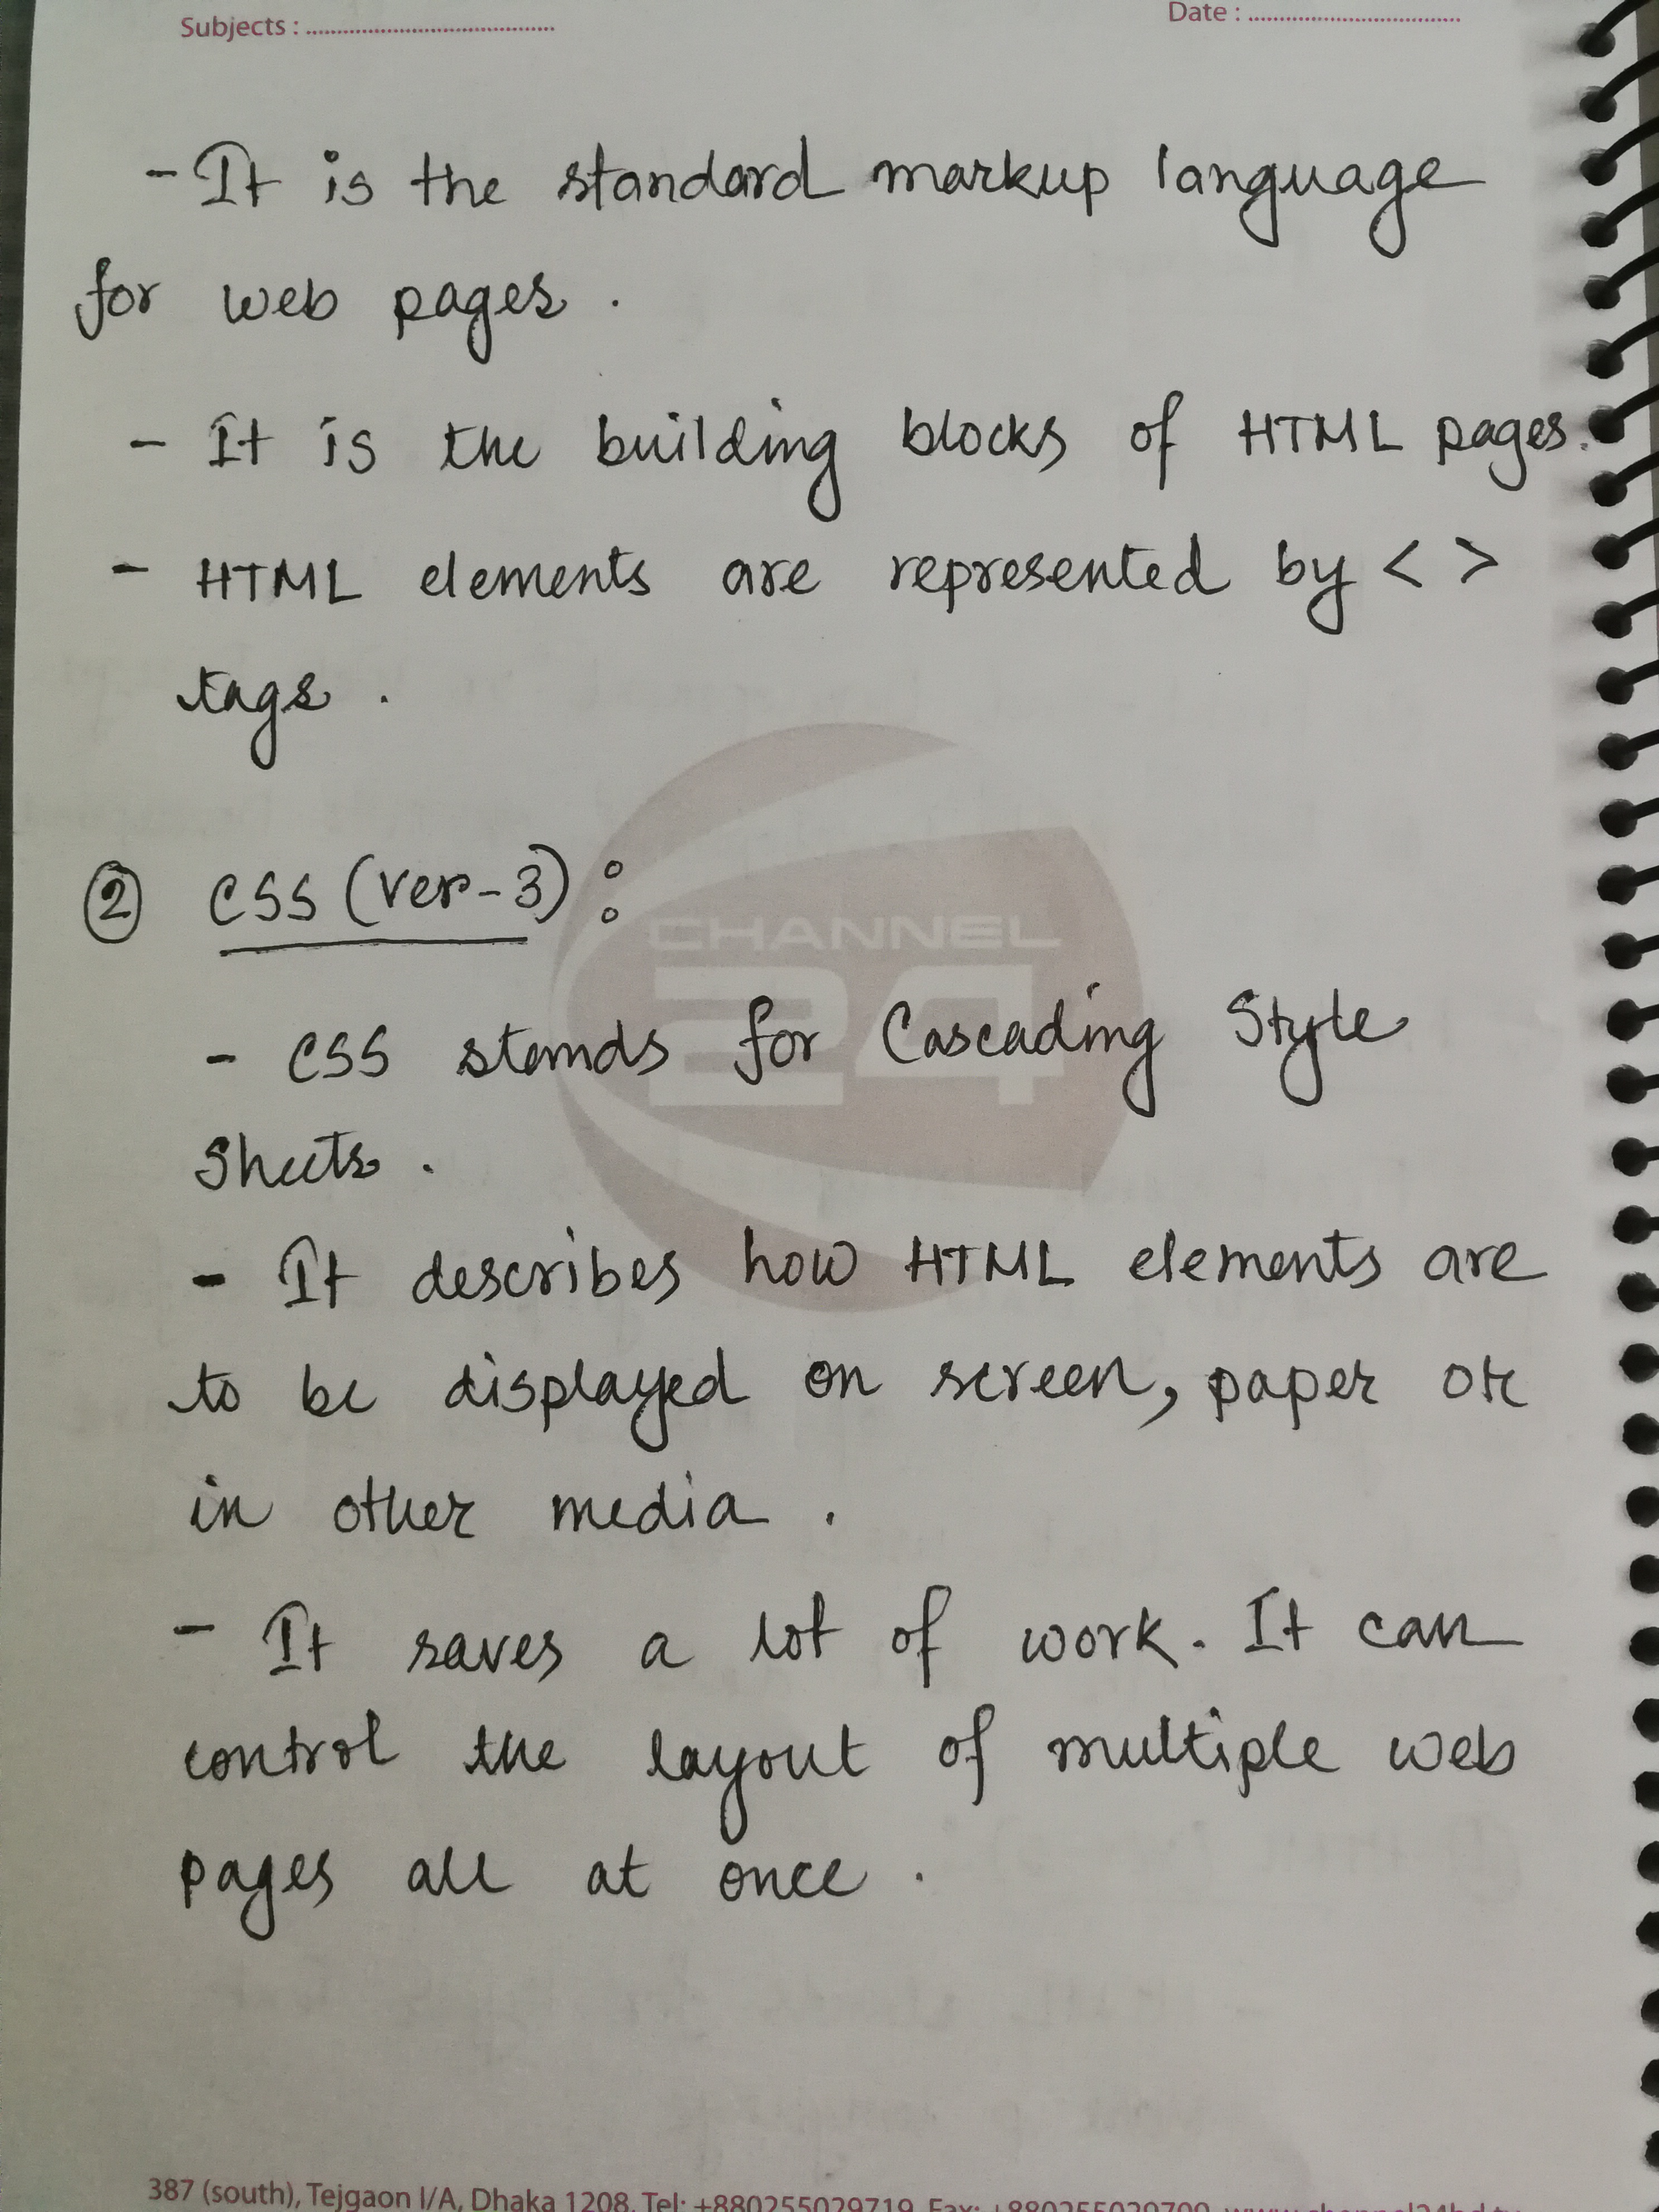 Subjects : ........................................
Date : ...................................
- It is the standard markup language
for web pages .
- It is the building blocks of HTML pages.
- HTML elements are represented by < >
tags .
② CSS (ver-3) :
CHANNEL
24
- CSS stands for Cascading Style
Sheets .
- It describes how HTML elements are
to be displayed on screen, paper or
in other media .
- It saves a lot of work. It can
control the layout of multiple web
pages all at once .
387 (south), Tejgaon I/A, Dhaka 1208, Tel: +880255029719, Fax: +880255029709, www.channel24bd.tv